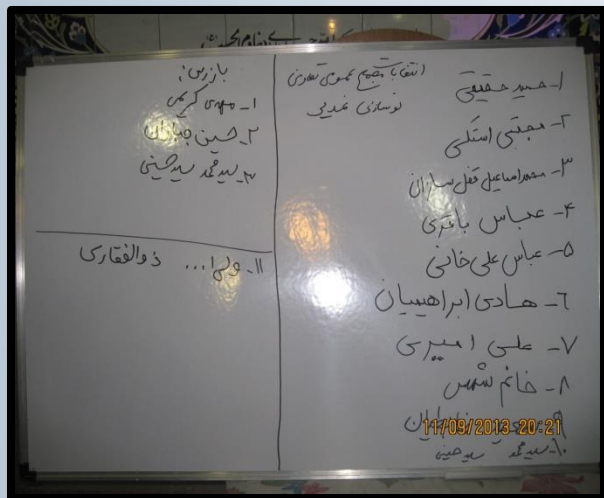 انتخابات مجمع عمومی تعاونی
نوسازی غدیر
۱- حمید حقیقی
۲- مجتبی استکی
۳- محمد اسماعیل قفل سازان
۴- عباس باقری
۵- عباس علی خانی
۶- هادی ابراهیمیان
۷- علی امیری
۸- خانم شمس
۹-
۱۰- سید محمد سید حسینی
بازرس:
۱- مهدی کریمی
۲- حسین
۳- سید محمد سید حسینی
۱۱- ولی ا... ذوالفقاری
11/09/2013 20:21